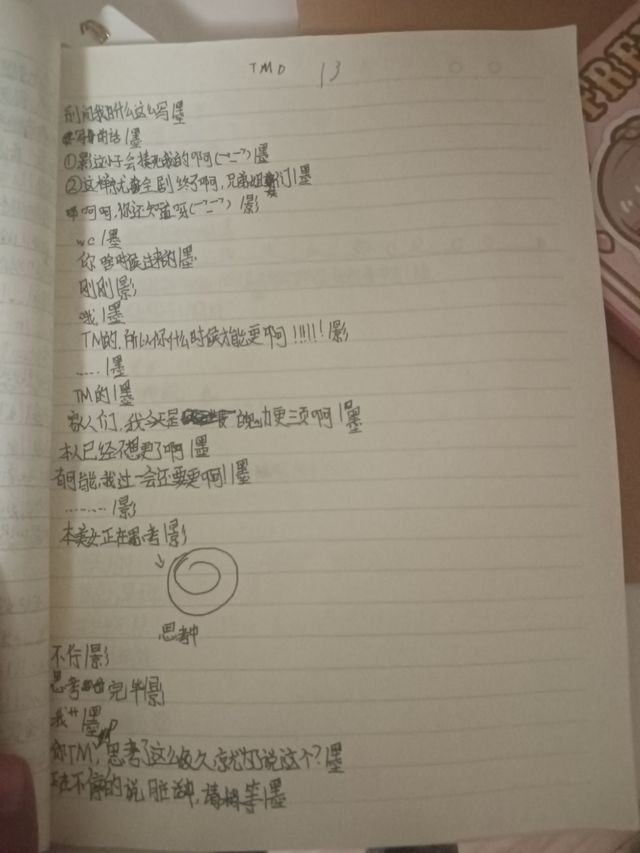 TMD 13
别问我为什么这么写|墨
不写的话|墨
①影这小子会揍死我的啊(一_一)|墨
②这样就会全剧终了啊,兄弟姐妹们|墨
呵呵,你还知道呀(一_一) |影
wc|墨
你啥时候过来的|墨
刚刚|影
哦|墨
TM的,所以你什么时候才能更啊!!!!!!|影
……|墨
TM的|墨
家人们,我今天是 的勉力更三页啊|墨
本人已经不想更了啊|墨
有可能,我过一会还要更啊!|墨
………|影
本美女正在思考|影
思考中
不行|影
思考完毕|影
我艹|墨
你TM,思考了这么久就为说这个?|墨
正在不停的说脏话中,请稍等|墨
FREE